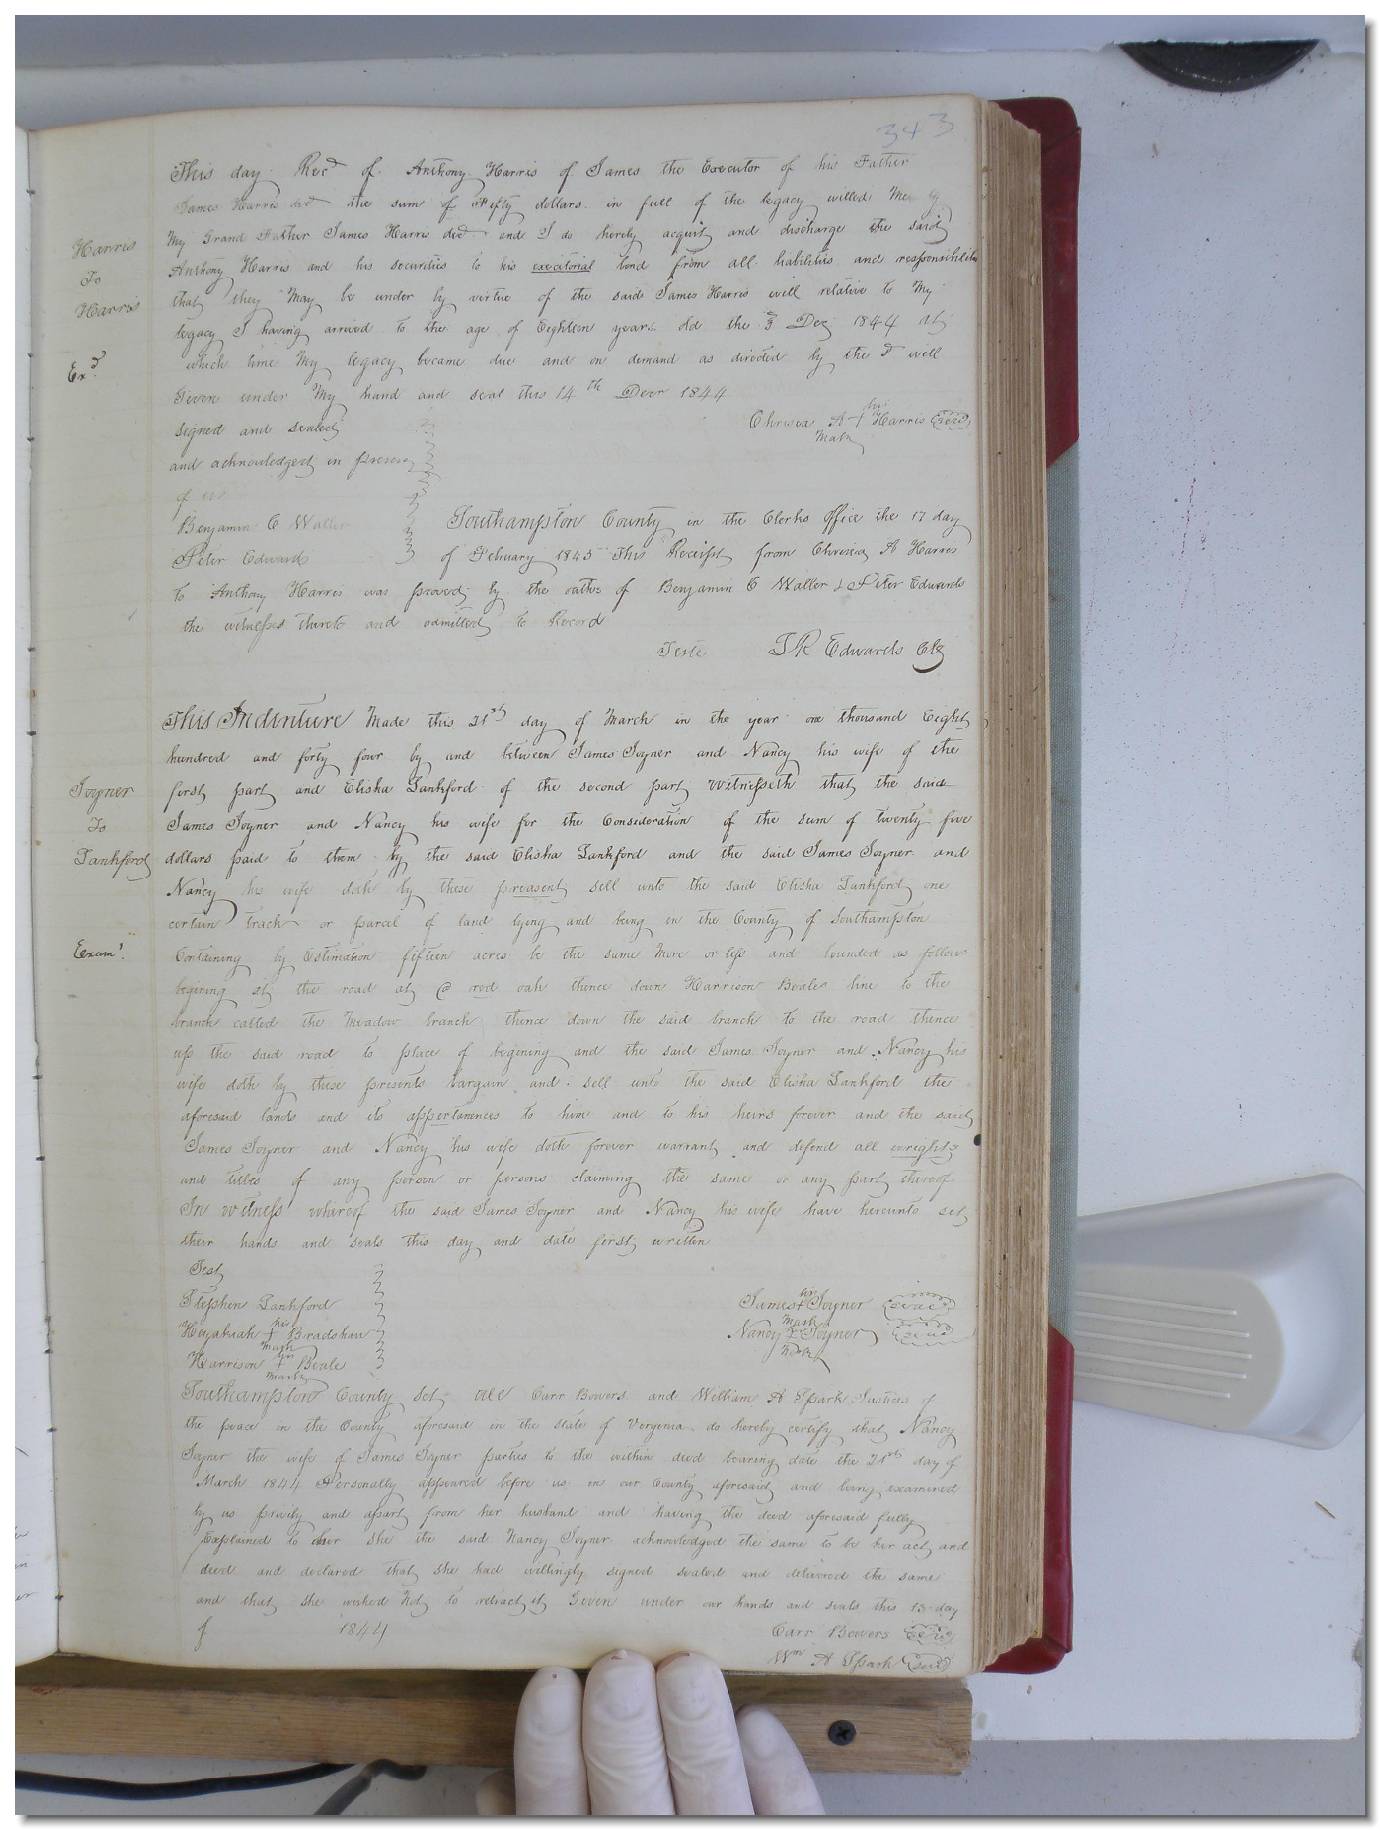 343
This day Recd of Anthony Harris of James the Executor of his Father
James Harris decd the sum of Fifty dollars in full of the legacy willed Me by
My Grand Father James Harris decd and I do hereby acquit and discharge the said
Harris
To
Harris
Anthony Harris and his securities to his executorial bond from all liabilities and responsibilities
that they May be under by virtue of the said James Harris will relative to My
legacy I having arrived to the age of Eighteen years old the 3 Dec 1844 at
Exd
which time My legacy became due and on demand as directed by the sd will
Given under My hand and seal this 14th Decr 1844
signed and sealed
and acknowledged in presence
of us
Chrisea A + Harris seal
his
Mark
Benjamin C Waller
Peter Edwards
Southampton County in the Clerks Office the 17 day
of Febuary 1845 This Receipt from Chrisea A Harris
to Anthony Harris was proved by the oaths of Benjamin C Waller & Peter Edwards
the witnesses thereto and admitted to Record
Teste L R Edwards Clk
This Indenture Made this 21st day of March in the year one thousand Eight
hundred and forty four by and between James Joyner and Nancy his wife of the
Joyner
To
Lankford
first part and Elisha Lankford of the second part Witnesseth that the said
James Joyner and Nancy his wife for the Consideration of the sum of twenty five
dollars paid to them by the said Elisha Lankford and the said James Joyner and
Nancy his wife doth by these preasent sell unto the said Elisha Lankford one
certain track or parcel of land lying and being in the County of Southampton
Exam'
Containing by Estimation fifteen acres be the same More or less and bounded as follows
begining at the road at @ red oak thence down Harrison Beales line to the
branch called the Meadow branch thence down the said branch to the road thence
up the said road to place of begining and the said James Joyner and Nancy his
wife doth by these presents bargain and sell unto the said Elisha Lankford the
aforesaid lands and its appertanences to him and to his heirs forever and the said
James Joyner and Nancy his wife doth forever warrant and defend all wrights
and titles of any person or persons claiming the same or any part thereof
In Witness whareof the said James Joyner and Nancy his wife have hereunto set
their hands and seals this day and date first written
Test
Stephen Lankford
his
Hezakiah + Bradshaw
Mark
his
Harrison + Beale
Mark
his
James + Joyner seal
Mark
Nancy + Joyner seal
Mark
Southampton County Sct We Carr Bowers and William A Spark Justices of
the peace in the County aforesaid in the State of Vergenia do hereby certify that Nancy
Joyner the wife of James Joyner parties to the within deed bearing date the 21st day of
March 1844 Personally appeared before us in our County aforesaid and being examined
by us privily and apart from her husband and having the deed aforesaid fully
Explained to her she the said Nancy Joyner acknowledged the same to be her act and
deed and declared that she had willingly signed sealed and delivered the same
and that she wished Not to retract it Given under our hands and seals this 13 day
of 1844
Carr Bowers seal
Wm A Spark seal